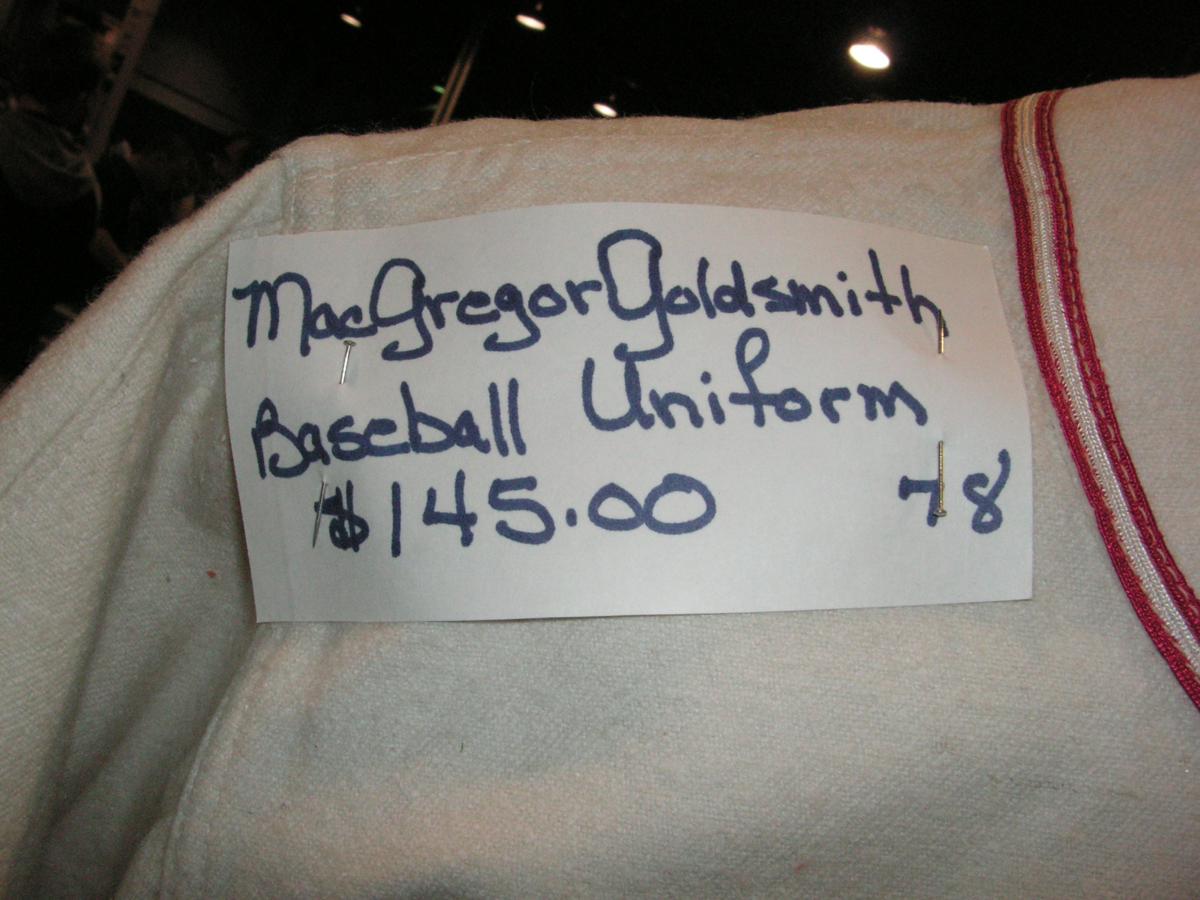 MacGregor Goldsmith
Baseball Uniform
$145.00 78